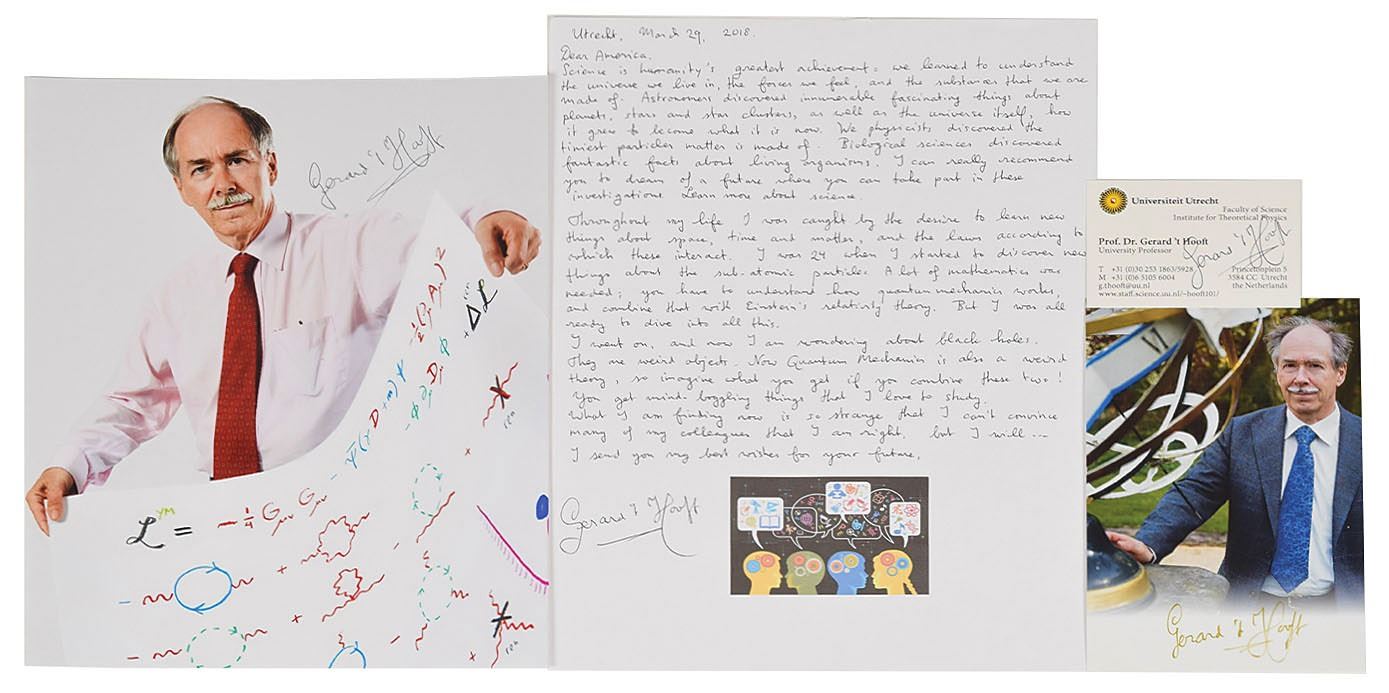 Gerard 't Hooft
L^YM = -1/4 Gμν Gμν - ψ̄(γD+m)ψ - 1/2(DμAμ)2
+ΔL
ren
ren
Utrecht, March 29, 2018.
Dear America,
Science is humanity's greatest achievement: we learned to understand
the universe we live in, the forces we feel, and the substances that we are
made of. Astronomers discovered innumerable fascinating things about
planets, stars and star clusters, as well as the universe itself, how
it grew to become what it is now. We physicists discovered the
tiniest particles matter is made of. Biological sciences discovered
fantastic facts about living organisms. I can really recommend
you to dream of a future where you can take part in these
investigations. Learn more about science.
Throughout my life I was caught by the desire to learn new
things about space, time and matter, and the laws according to
which these interact. I was 24 when I started to discover new
things about the sub-atomic particles. A lot of mathematics was
needed; you have to understand how quantum mechanics works,
and combine that with Einstein's relativity theory. But I was all
ready to dive into all this.
I went on, and now I am wondering about black holes.
They are weird objects. Now Quantum Mechanics is also a weird
theory, so imagine what you get if you combine these two!
You get mind-boggling things that I love to study.
What I am finding now is so strange that I can't convince
many of my colleagues that I am right, but I will ...
I send you my best wishes for your future,
Gerard 't Hooft
Universiteit Utrecht
Faculty of Science
Institute for Theoretical Physics
Prof. Dr. Gerard 't Hooft
University Professor
Gerard 't Hooft
T +31 (0)30 253 1863/5928 Princetonplein 5
M +31 (0)6 5105 6004 3584 CC Utrecht
g.thooft@uu.nl the Netherlands
www.staff.science.uu.nl/~hooft101/
Gerard 't Hooft